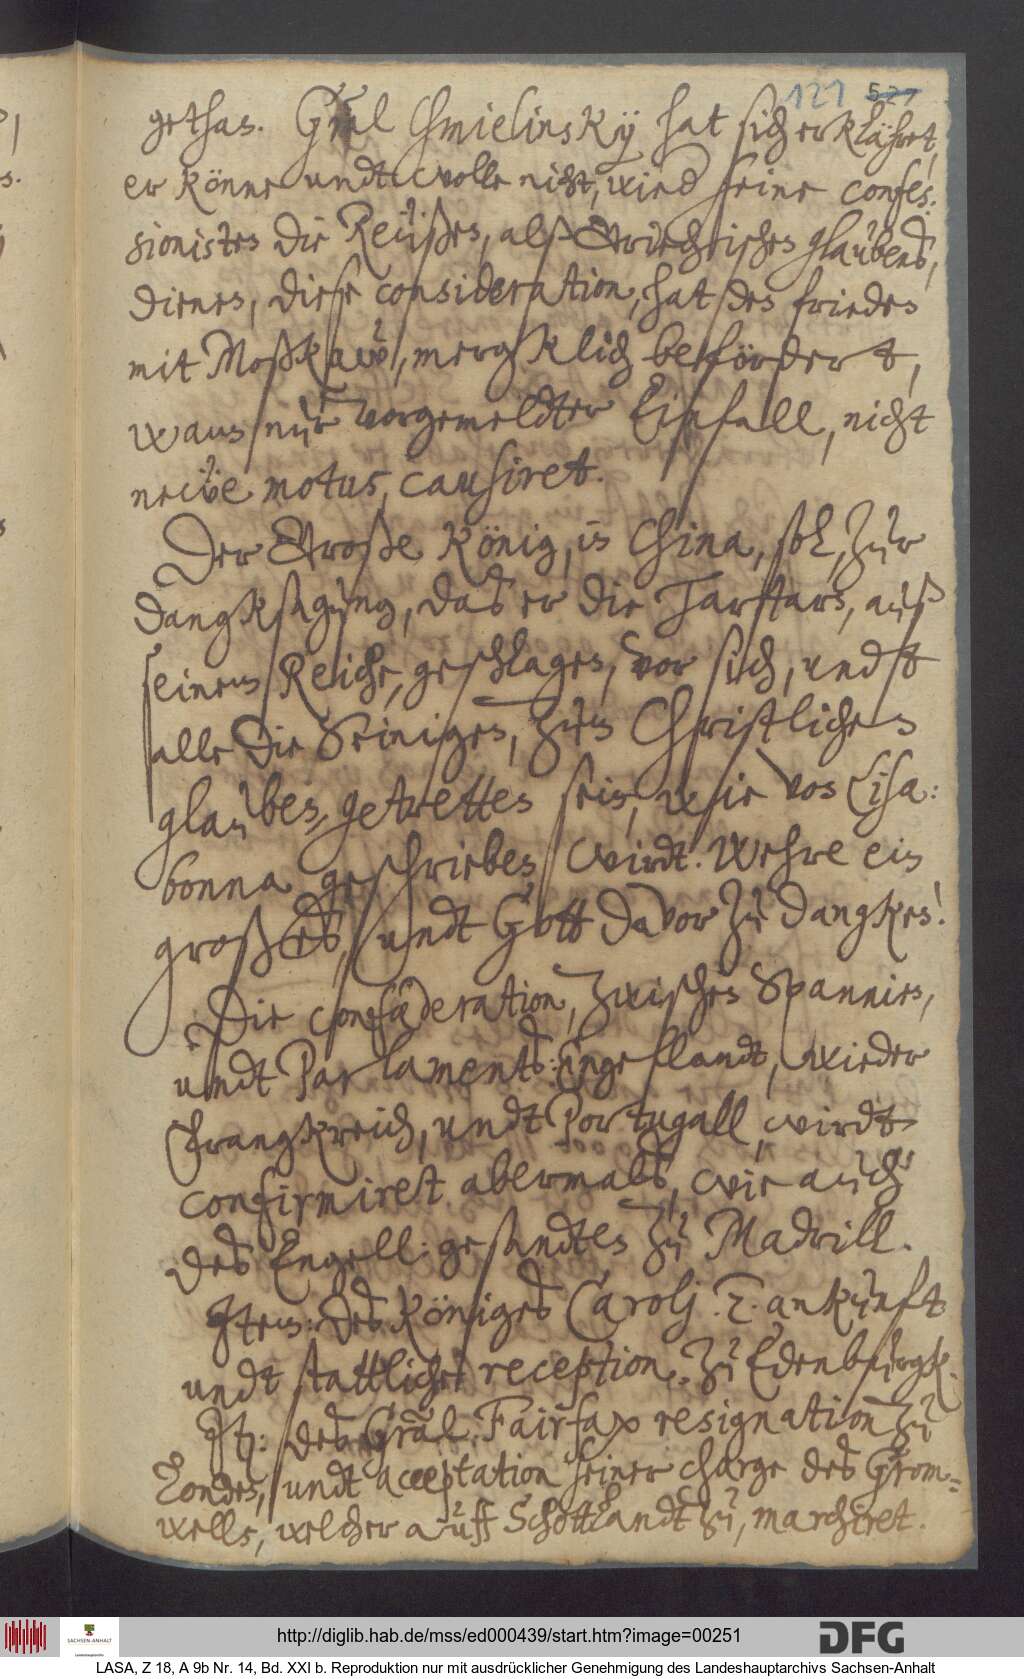 121 521
gethan. Gräl Chmielinsky hat sich erklähret,
er könne undt wolle nicht, wied seine confes:
sionisten die Reüßen, alß Griechischen glaubens,
dienen, diese consideration, hat den frieden
mit Moßkaw, mergklich befördert,
wann nur vorgemeldter Einfall, nicht
newe motus, causiret.
Der Große König, in China, sol, zur
dangksagung, das er die Tarttarn, auß
seinem Reiche, geschlagen, vor sich, undt
alle die Seinigen, zum Christlichen
glauben, getretten sein, wie von Lisa:
bonna geschrieben wirdt. Wehre ein
großes, undt Gott davor zu dangken!
Die confœderation, zwischen Spannien,
undt Parlaments: Engellandt, wieder
Frangkreich, undt Portugall, wirdt
confirmiret abermals, wie auch
des Engell: gesandten zu Madrill.
Item: des Königes Carolj .2. ankunft
undt stattliche reception, zu Edenburgk.
It: des Gräl: Fairfax resignation zu
Londen, undt acceptation seiner charge des Crom=
wells, welcher auff Schottlandt zu, marchiret.
SACHSEN-ANHALT
http://diglib.hab.de/mss/ed000439/start.htm?image=00251
DFG
LASA, Z 18, A 9b Nr. 14, Bd. XXI b. Reproduktion nur mit ausdrücklicher Genehmigung des Landeshauptarchivs Sachsen-Anhalt